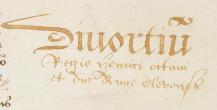 Divortiū
Regis Henrici octaui
et dne Anne Clevensis